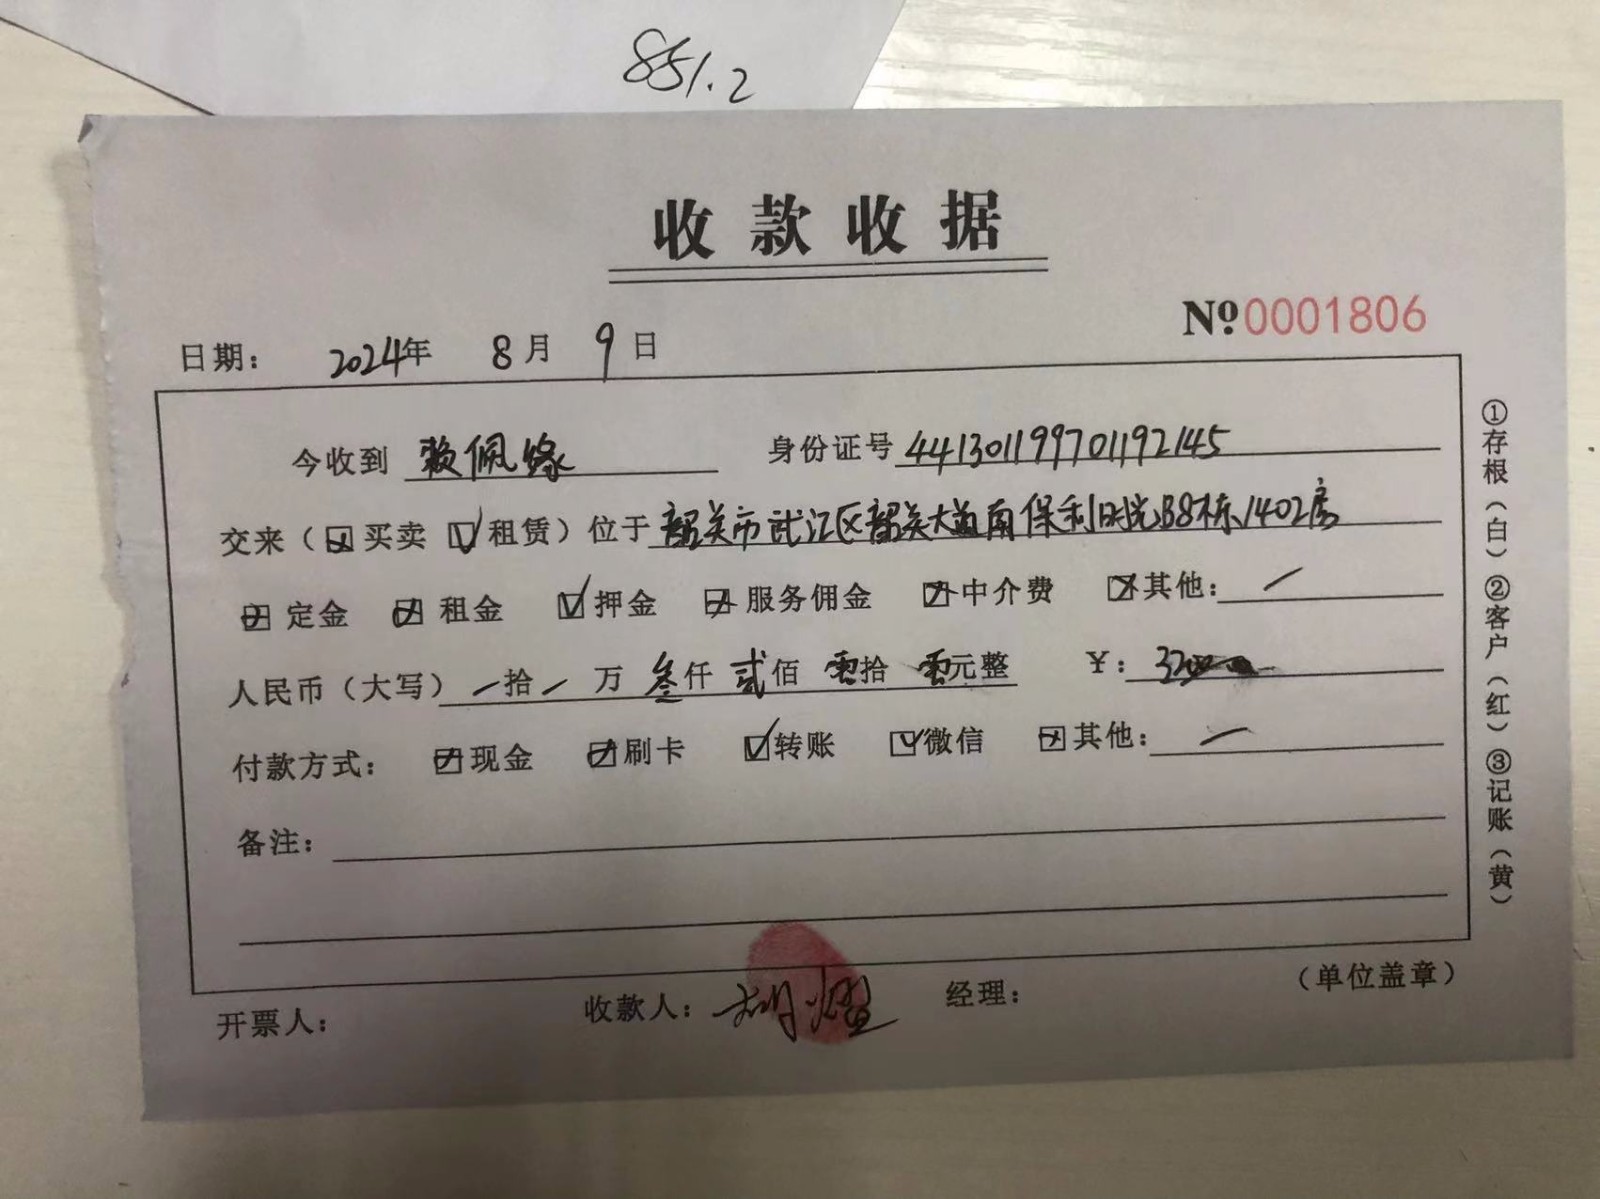 851.2
收款收据
№0001806
日期: 2024年 8月 9日
今收到 赖佩缘 身份证号 441301199701192145
交来(☒买卖 ☑租赁)位于 韶关市武江区韶关大道南保利 B8栋1402房
☒定金 ☒租金 ☑押金 ☒服务佣金 ☒中介费 ☒其他: /
人民币(大写) / 拾 / 万 叁仟 贰佰 零拾 零元整 ¥: 3200
付款方式: ☒现金 ☒刷卡 ☑转账 ☑微信 ☒其他: /
备注:
开票人: 收款人: 胡 经理: (单位盖章)
①存根(白)②客户(红)③记账(黄)